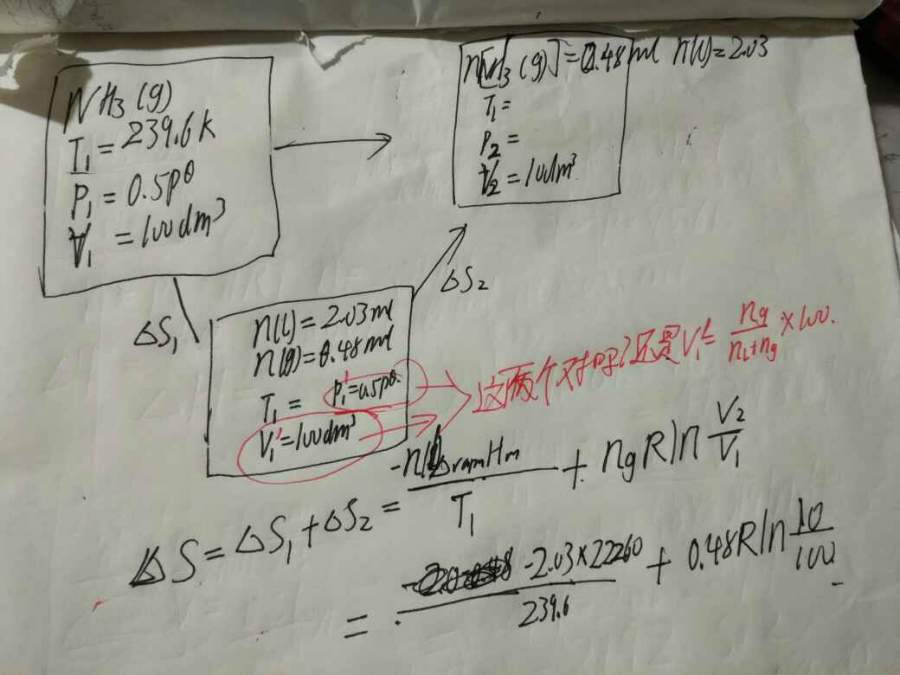 NH3(g)
T1 = 239.6K
P1 = 0.5pθ
V1 = 100dm³
n[NH3(g)] = 0.48ml n(l) = 2.03
T1 =
P2 =
V2 = 10dm³
ΔS1
ΔS2
n(l) = 2.03ml
n(g) = 0.48ml
T1 = P1' = 0.5pθ
V1' = 100dm³
这两个对吗?还是V1' = ng/(nl+ng) × 100.
ΔS = ΔS1 + ΔS2 = -n(l)ΔvapHm/T1 + ngRln V2/V1
= -2.03×22260/239.6 + 0.48Rln 10/100